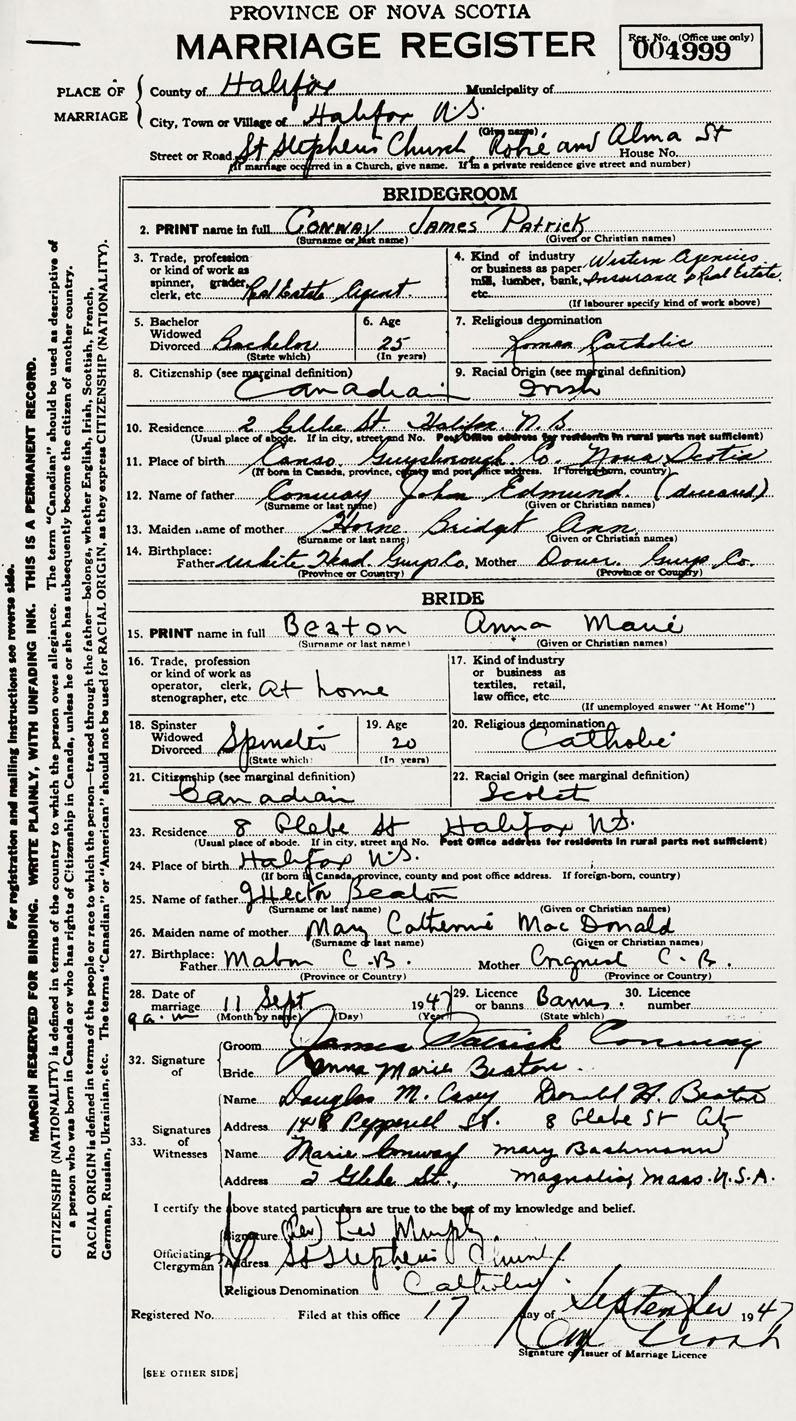 PROVINCE OF NOVA SCOTIA
MARRIAGE REGISTER
Reg. No. (Office use only)
004999
PLACE OF MARRIAGE
County of Halifax Municipality of
City, Town or Village of Halifax N.S.
(Give name)
Street or Road St Stephens Church, Robie and Alma St House No.
(If marriage occurred in a Church, give name. If in a private residence give street and number)
BRIDEGROOM
2. PRINT name in full CONWAY JAMES PATRICK
(Surname or last name) (Given or Christian names)
3. Trade, profession
or kind of work as
spinner, grader,
clerk, etc. Real Estate Agent.
4. Kind of industry
or business as paper
mill, lumber, bank,
etc. Western Agencies Insurance & Real Estate.
(If labourer specify kind of work above)
5. Bachelor
Widowed
Divorced Bachelor
(State which)
6. Age
25
(In years)
7. Religious denomination
Roman Catholic
8. Citizenship (see marginal definition)
Canadian
9. Racial Origin (see marginal definition)
Irish
10. Residence 2 Glebe St Halifax N.S
(Usual place of abode. If in city, street and No. Post Office address for residents in rural parts not sufficient)
11. Place of birth Canso Guysborough Co. Nova Scotia
(If born in Canada, province, county and post office address. If foreign-born, country)
12. Name of father Conway John Edmund (deceased)
(Surname or last name) (Given or Christian names)
13. Maiden name of mother Horne Bridget Ann
(Surname or last name) (Given or Christian names)
14. Birthplace:
Father White Head Guys Co, Mother Dover Guys Co.
(Province or Country) (Province or Country)
BRIDE
15. PRINT name in full Beaton Anna Marie
(Surname or last name) (Given or Christian names)
16. Trade, profession
or kind of work as
operator, clerk,
stenographer, etc. At home
17. Kind of industry
or business as
textiles, retail,
law office, etc.
(If unemployed answer "At Home")
18. Spinster
Widowed
Divorced Spinster
(State which)
19. Age
20
(In years)
20. Religious denomination
Catholic
21. Citizenship (see marginal definition)
Canadian
22. Racial Origin (see marginal definition)
23. Residence 8 Glebe St Halifax N.S.
(Usual place of abode. If in city, street and No. Post Office address for residents in rural parts not sufficient)
24. Place of birth Halifax N.S.
(If born in Canada, province, county and post office address. If foreign-born, country)
25. Name of father J Hector Beaton
(Surname or last name) (Given or Christian names)
26. Maiden name of mother Mary Catherine MacDonald
(Surname or last name) (Given or Christian names)
27. Birthplace:
Father Mabou C.B. Mother C.B.
(Province or Country) (Province or Country)
28. Date of
marriage 11 Sept 1947
9 a.m (Month by name) (Day) (Year)
29. Licence
or banns Banns.
(State which)
30. Licence
number
32. Signature
of
Groom James Patrick Conway
Bride Anna Marie Beaton.
33. Signatures
of
Witnesses
Name Douglas M. Casey Donald H. Beaton
Address 148 Pepperell St. 8 Glebe St City
Name Marie Conway Mary Bachmann
Address 2 Glebe St., Magnolia, Mass. U.S.A.
I certify the above stated particulars are true to the best of my knowledge and belief.
Officiating
Clergyman
Signature (Rev) Leo Murphy
Address St Stephens Church
Religious Denomination Catholic
Registered No. Filed at this office 17 day of September 1947
Signature of Issuer of Marriage Licence
[SEE OTHER SIDE]
For registration and mailing instructions see reverse side.
MARGIN RESERVED FOR BINDING. WRITE PLAINLY, WITH UNFADING INK. THIS IS A PERMANENT RECORD.
CITIZENSHIP (NATIONALITY) is defined in terms of the country to which the person owes allegiance. The term "Canadian" should be used as descriptive of
a person who was born in Canada or who has rights of Citizenship in Canada, unless he or she has subsequently become the citizen of another country.
RACIAL ORIGIN is defined in terms of the people or race to which the person—traced through the father—belongs, whether English, Irish, Scottish, French,
German, Russian, Ukrainian, etc. The terms "Canadian" or "American" should not be used for RACIAL ORIGIN, as they express CITIZENSHIP (NATIONALITY).